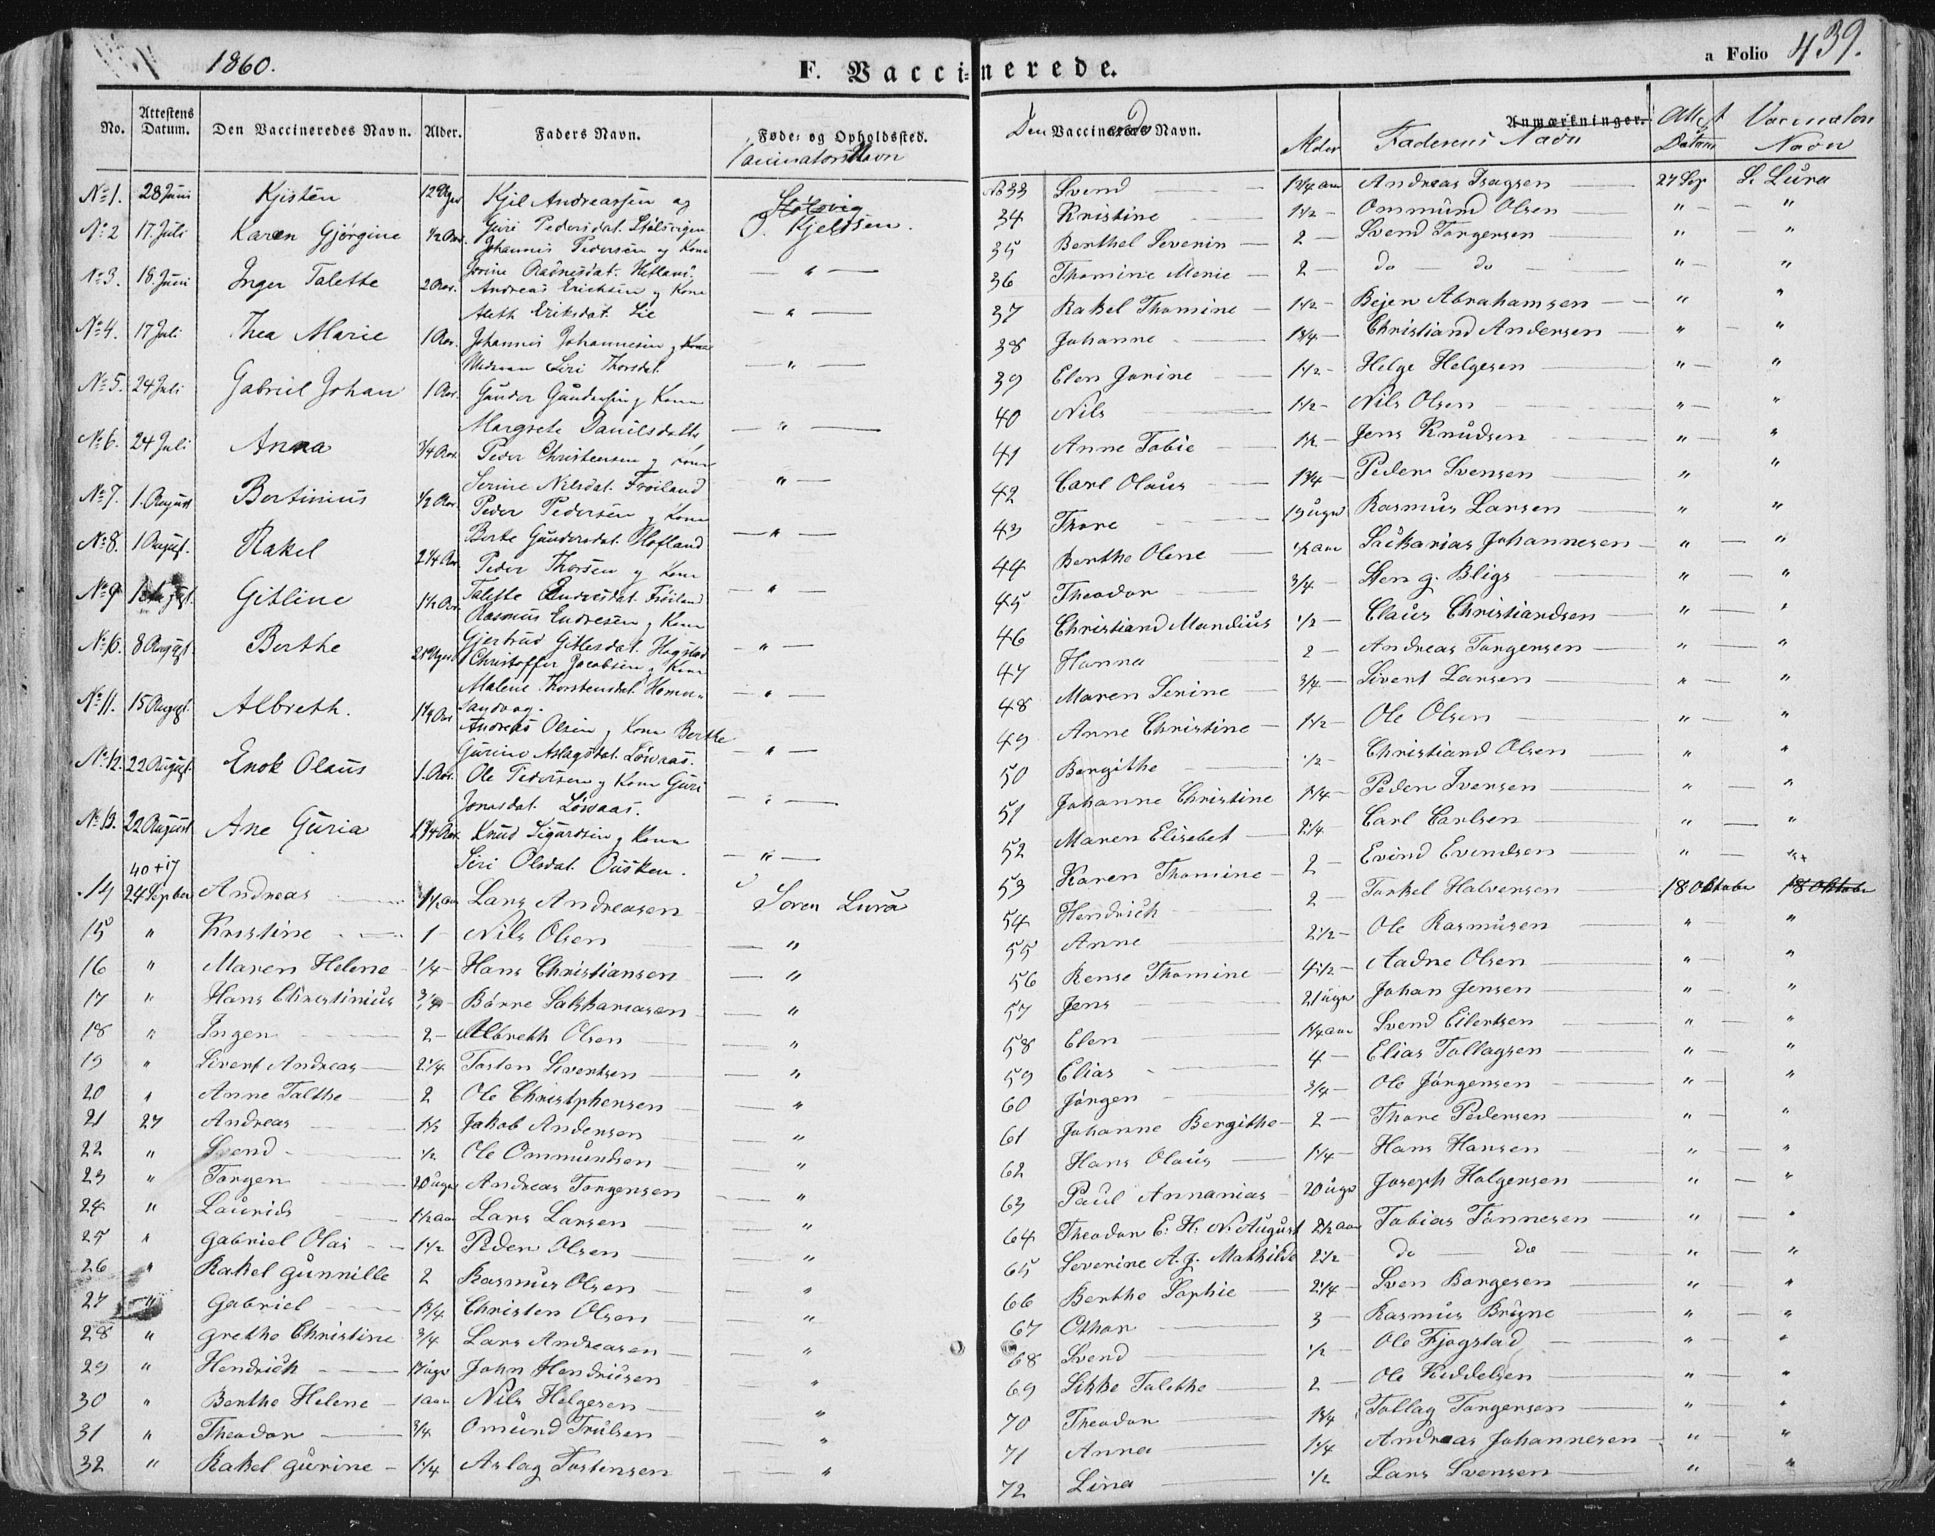 1860.
F. Vaccinerede.
a Folio 439.
No. Attestens Datum. Den Vaccineredes Navn. Alder. Faders Navn. Føde- og Opholdssted.
Vaccinators Navn
No 1. 28 Juni Kjisten 12 Uger Kjel Andreassen og
Guri Pedersdat. Stølsvigen
P. Kjeldsen.
No 2 17. Juli Karen Gjørgine 1/2 Aar. Johannis Pedersen og Kone
No 3. 18. Juni Inger Talette 2 Aar. Andreas Ericksen og Kone
Aleth Eriksdat. Lie
No 4. 17 Juli Thea Marie 1 Aar. Johannis Johannesen og Kone
Siri Thorsdat.
No 5. 24 Juli Gabriel Johan 1 Aar. Gunder Gundersen og Kone
Margrete Danilsdatter
No 6. 24 Juli Anna 3/4 Aar. Peder Christensen og Kone
Serine Nilsdat. Frøiland
No 7. 1. August Bertinius 1/2 Aar. Peder Pedersen og Kone
Berte Gundersdat. Hofland
No 8. 1 August. Rakel 2 1/4 Aar Peder Thorsen og Kone
Talette Endresdat. Frøiland
No 9 Gitline 1 1/2 Aar Rasmus Endresen og Kone
Gjertrud Gitlesdat. Hogstad
No 10. 8 August Berthe 21 Uger Christoffer Jacobsen og Kone
Malene Thorstensdat. Hommersandvog.
No 11. 15 August. Albreth. 1 1/4 Aar Andreas Olsen og Kone Berthe
Gurine Aslagsdat. Løwaas.
No 12. 22 August. Enok Olaus 1. Aar. Ole Pedersen og Kone Guri
Jonasdat. Løwaas.
No 13. 22 August Ane Guria 1 3/4 Aar. Knud Sigurdsen og Kone
Siri Olsdat. Ousken.
40+17
14 24 September Andreas 1 1/2 aar Lars Andreasen Søren Lura
15 " Kristine 1 Nils Olsen "
16 " Maren Helene 1/4 Hans Christiansen "
17 " Hans Christinius 3/4 Børre Sakkariasen "
18 " Inger 2 Albreth Olsen "
19 " Sivert Andreas 2 1/4 Tosten Sivertsen "
20 " Anne Talthe 2 Ole Christphensen "
21 27 Andreas 1 1/2 Jakob Andersen "
22 " Svend 1/2 Ole Ommundsen "
23 " Torger 20 uger Andreas Torgersen "
24 " Laurids 1 1/2 aar Lars Larsen "
25 " Gabriel Olai 1 1/2 Peder Olsen "
26 " Rakel Gunnille 2 Rasmus Olsen "
27 " Gabriel 1 3/4 Christen Olsen "
28 " Grethe Christine 3/4 Lars Andreasen "
29 " Hendrich 17 uger John Hendriksen "
30 " Berthe Helene 1 aar Nils Helgesen "
31 " Theodor 3/4 Omund Trulsen "
32 " Rakel Gurine 1 1/4 Aslag Tostensen "
Den Vaccineredes Navn. Alder Anmærkninger. Faderens Navn Attest Datum Vaccinators Navn
No 33 Svend 1 3/4 aar Andreas Isagsen 27 Sep S. Lura
34 Kristine 1 1/2 Ommund Olsen " "
35 Berthel Severin 2 Svend Torgersen " "
36 Thomine Merie 2 do do " "
37 Rakel Thomine 1 1/2 Bejer Abrahamsen " "
38 Johanne 1 3/4 Christiand Andersen " "
39 Elen Jorine 1 1/2 Helge Helgesen " "
40 Nils 1 1/2 Nils Olsen " "
41 Anne Tobie 1 1/2 Jens Knudsen " "
42 Carl Olaus 1 3/4 Peder Svensen " "
43 Thore 19 uger Rasmus Larsen " "
44 Berthe Olene 1/2 aar Sackarias Johannesen " "
45 Theodor 3/4 Sten g. Bligs " "
46 Christiand Mandius 1/2 Claus Christiandsen " "
47 Hanna 2 Andreas Torgersen " "
48 Maren Serine 3/4 Sivert Larsen " "
49 Anne Christine 1 1/2 Ole Olsen " "
50 Bergithe 1/2 Christiand Olsen " "
51 Johanne Christine 1 3/4 Peder Iversen " "
52 Maren Elisebet 2 1/4 Carl Carlsen " "
53 Karen Thomine 2 Evind Evindsen " "
54 Hendrich 2 Torkel Halvorsen 18 Oktober 18 Oktober
55 Anne 2 1/2 Ole Rasmusen " "
56 Rense Thomine 4 1/2 Aadne Olsen " "
57 Jens 21 uger Johan Jensen " "
58 Elen 1 1/4 aar Svend Eilertsen " "
59 Elias 4 Elias Tollagsen " "
60 Jørgen 3/4 Ole Jørgensen " "
61 Johanne Bergithe 2 Thore Pedersen " "
62 Hans Olaus 1 1/4 Hans Hansen " "
63 Paul Annanias 20 uger Joseph Holgersen " "
64 Theodor E. H. N. August 2 1/2 aar Tobias Tønnesen " "
65 Severine A. J. Mathilde 2 1/2 do do " "
66 Berthe Sophie 2 1/4 Sven Borgesen " "
67 Othar 3 Rasmus Bryne " "
68 Svend 1/2 Ole Fjogstad " "
69 Sikke Talethe 2 Ole Kiddelsen " "
70 Theodor 1 3/4 Tollag Torgersen " "
71 Anna 1 1/4 Andreas Johannesen " "
72 Lina 1/2 Lars Svensen " "